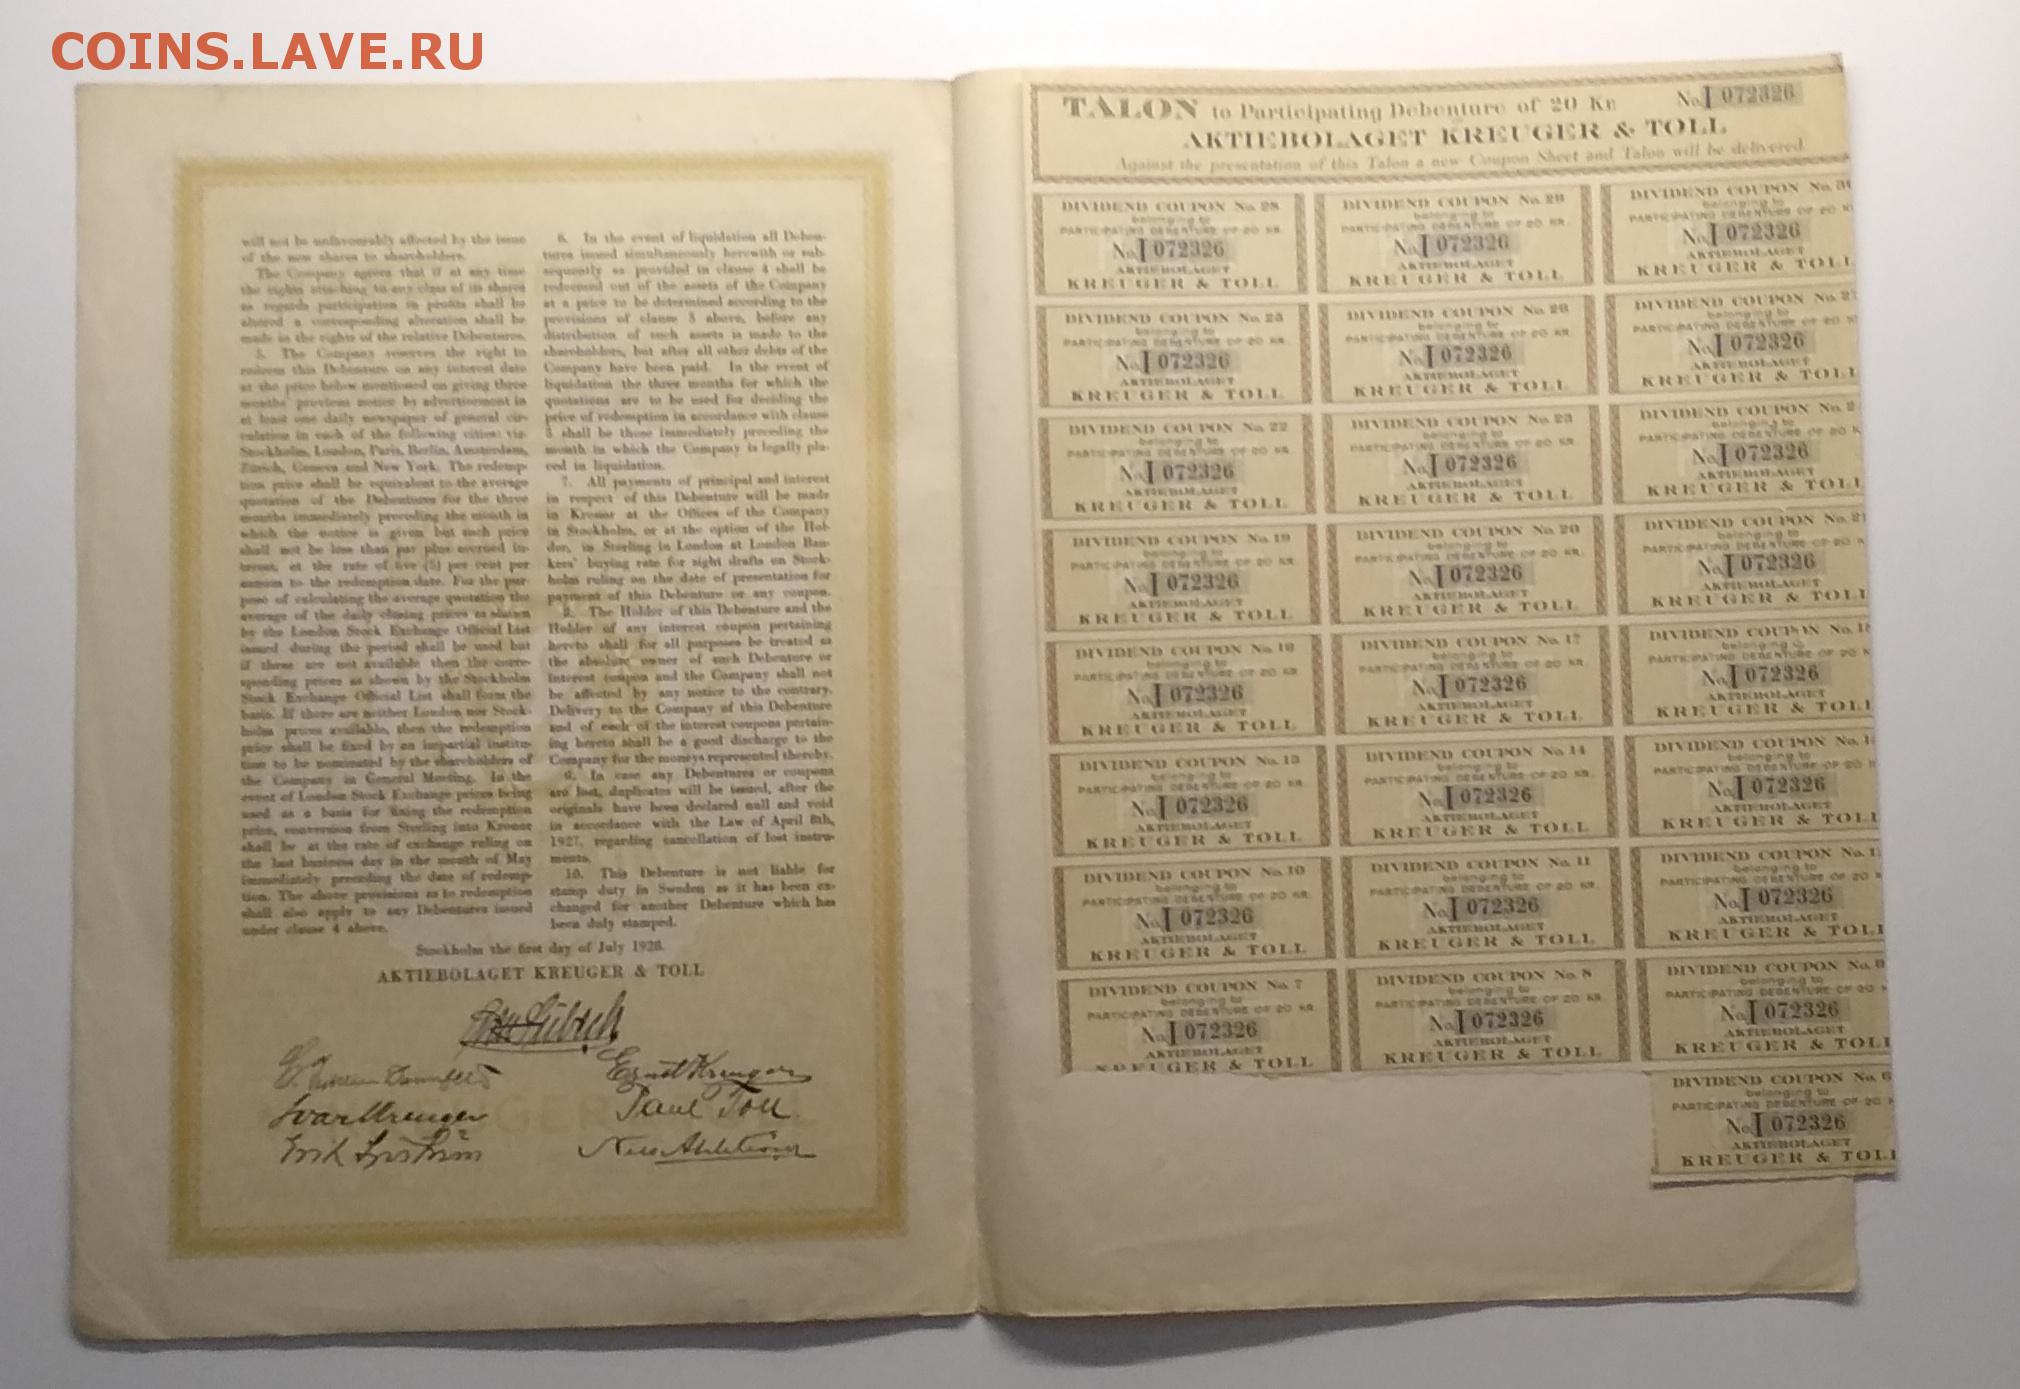 COINS.LAVE.RU
will not be unfavourably affected by the issue
of the new shares to shareholders.
The Company agrees that if at any time
the rights attaching to any class of its shares
as regards participation in profits shall be
altered a corresponding alteration shall be
made in the rights of the relative Debentures.
5. The Company reserves the right to
redeem this Debenture on any interest date
at the price below mentioned on giving three
months' previous notice by advertisement in
at least one daily newspaper of general cir-
culation in each of the following cities: viz-
Stockholm, London, Paris, Berlin, Amsterdam,
Zürich, Geneva and New York. The redemp-
tion price shall be equivalent to the average
quotation of the Debentures for the three
months immediately preceding the month in
which the notice is given but such price
shall not be less than par plus accrued in-
terest, at the rate of five (5) per cent per
annum to the redemption date. For the pur-
pose of calculating the average quotation the
average of the daily closing prices as shown
by the London Stock Exchange Official List
issued during the period shall be used but
if these are not available then the corre-
sponding prices as shown by the Stockholm
Stock Exchange Official List shall form the
basis. If there are neither London nor Stock-
holm prices available, then the redemption
price shall be fixed by an impartial institu-
tion to be nominated by the shareholders of
the Company in General Meeting. In the
event of London Stock Exchange prices being
used as a basis for fixing the redemption
price, conversion from Sterling into Kronor
shall be at the rate of exchange ruling on
the last business day in the month of May
immediately preceding the date of redemp-
tion. The above provisions as to redemption
shall also apply to any Debentures issued
under clause 4 above.
6. In the event of liquidation all Deben-
tures issued simultaneously herewith or sub-
sequently as provided in clause 4 shall be
redeemed out of the assets of the Company
at a price to be determined according to the
provisions of clause 5 above, before any
distribution of such assets is made to the
shareholders, but after all other debts of the
Company have been paid. In the event of
liquidation the three months for which the
quotations are to be used for deciding the
price of redemption in accordance with clause
5 shall be those immediately preceding the
month in which the Company is legally pla-
ced in liquidation.
7. All payments of principal and interest
in respect of this Debenture will be made
in Kronor at the Offices of the Company
in Stockholm, or at the option of the Hol-
der, in Sterling in London at London Ban-
kers' buying rate for sight drafts on Stock-
holm ruling on the date of presentation for
payment of this Debenture or any coupon.
8. The Holder of this Debenture and the
Holder of any interest coupon pertaining
hereto shall for all purposes be treated as
the absolute owner of such Debenture or
Interest coupon and the Company shall not
be affected by any notice to the contrary.
Delivery to the Company of this Debenture
and of each of the interest coupons pertain-
ing hereto shall be a good discharge to the
Company for the moneys represented thereby.
9. In case any Debentures or coupons
are lost, duplicates will be issued, after the
originals have been declared null and void
in accordance with the Law of April 8th,
1927, regarding cancellation of lost instru-
ments.
10. This Debenture is not liable for
stamp duty in Sweden as it has been ex-
changed for another Debenture which has
been duly stamped.
Stockholm the first day of July 1928.
AKTIEBOLAGET KREUGER & TOLL
Ernst Kreuger
Ivar Kreuger
Paul Toll
TALON to Participating Debenture of 20 Kr. No. I 072326
AKTIEBOLAGET KREUGER & TOLL
Against the presentation of this Talon a new Coupon Sheet and Talon will be delivered
DIVIDEND COUPON No. 28
belonging to
PARTICIPATING DEBENTURE OF 20 KR.
No. I 072326
AKTIEBOLAGET
KREUGER & TOLL
DIVIDEND COUPON No. 29
belonging to
PARTICIPATING DEBENTURE OF 20 KR.
No. I 072326
AKTIEBOLAGET
KREUGER & TOLL
DIVIDEND COUPON No. 3
belonging to
PARTICIPATING DEBENTURE OF 20
No. I 072326
AKTIEBOLAGET
KREUGER & TOLL
DIVIDEND COUPON No. 25
belonging to
PARTICIPATING DEBENTURE OF 20 KR.
No. I 072326
AKTIEBOLAGET
KREUGER & TOLL
DIVIDEND COUPON No. 26
belonging to
PARTICIPATING DEBENTURE OF 20 KR.
No. I 072326
AKTIEBOLAGET
KREUGER & TOLL
DIVIDEND COUPON No. 27
belonging to
PARTICIPATING DEBENTURE OF 20
No. I 072326
AKTIEBOLAGET
KREUGER & TOLL
DIVIDEND COUPON No. 22
belonging to
PARTICIPATING DEBENTURE OF 20 KR.
No. I 072326
AKTIEBOLAGET
KREUGER & TOLL
DIVIDEND COUPON No. 23
belonging to
PARTICIPATING DEBENTURE OF 20 KR.
No. I 072326
AKTIEBOLAGET
KREUGER & TOLL
DIVIDEND COUPON No. 2
belonging to
PARTICIPATING DEBENTURE OF 20
No. I 072326
AKTIEBOLAGET
KREUGER & TOLL
DIVIDEND COUPON No. 19
belonging to
PARTICIPATING DEBENTURE OF 20 KR.
No. I 072326
AKTIEBOLAGET
KREUGER & TOLL
DIVIDEND COUPON No. 20
belonging to
PARTICIPATING DEBENTURE OF 20 KR.
No. I 072326
AKTIEBOLAGET
KREUGER & TOLL
DIVIDEND COUPON No. 21
belonging to
PARTICIPATING DEBENTURE OF 20
No. I 072326
AKTIEBOLAGET
KREUGER & TOLL
DIVIDEND COUPON No. 16
belonging to
PARTICIPATING DEBENTURE OF 20 KR.
No. I 072326
AKTIEBOLAGET
KREUGER & TOLL
DIVIDEND COUPON No. 17
belonging to
PARTICIPATING DEBENTURE OF 20 KR.
No. I 072326
AKTIEBOLAGET
KREUGER & TOLL
DIVIDEND COUPON No. 18
belonging to
PARTICIPATING DEBENTURE OF 20
No. I 072326
AKTIEBOLAGET
KREUGER & TOLL
DIVIDEND COUPON No. 13
belonging to
PARTICIPATING DEBENTURE OF 20 KR.
No. I 072326
AKTIEBOLAGET
KREUGER & TOLL
DIVIDEND COUPON No. 14
belonging to
PARTICIPATING DEBENTURE OF 20 KR.
No. I 072326
AKTIEBOLAGET
KREUGER & TOLL
DIVIDEND COUPON No. 1
belonging to
PARTICIPATING DEBENTURE OF 20
No. I 072326
AKTIEBOLAGET
KREUGER & TOLL
DIVIDEND COUPON No. 10
belonging to
PARTICIPATING DEBENTURE OF 20 KR.
No. I 072326
AKTIEBOLAGET
KREUGER & TOLL
DIVIDEND COUPON No. 11
belonging to
PARTICIPATING DEBENTURE OF 20 KR.
No. I 072326
AKTIEBOLAGET
KREUGER & TOLL
DIVIDEND COUPON No. 1
belonging to
PARTICIPATING DEBENTURE OF 20
No. I 072326
AKTIEBOLAGET
KREUGER & TOLL
DIVIDEND COUPON No. 7
belonging to
PARTICIPATING DEBENTURE OF 20 KR.
No. I 072326
AKTIEBOLAGET
KREUGER & TOLL
DIVIDEND COUPON No. 8
belonging to
PARTICIPATING DEBENTURE OF 20 KR.
No. I 072326
AKTIEBOLAGET
KREUGER & TOLL
DIVIDEND COUPON No. 9
belonging to
PARTICIPATING DEBENTURE OF 20
No. I 072326
AKTIEBOLAGET
KREUGER & TOLL
DIVIDEND COUPON No. 6
belonging to
PARTICIPATING DEBENTURE OF 20
No. I 072326
AKTIEBOLAGET
KREUGER & TOLL